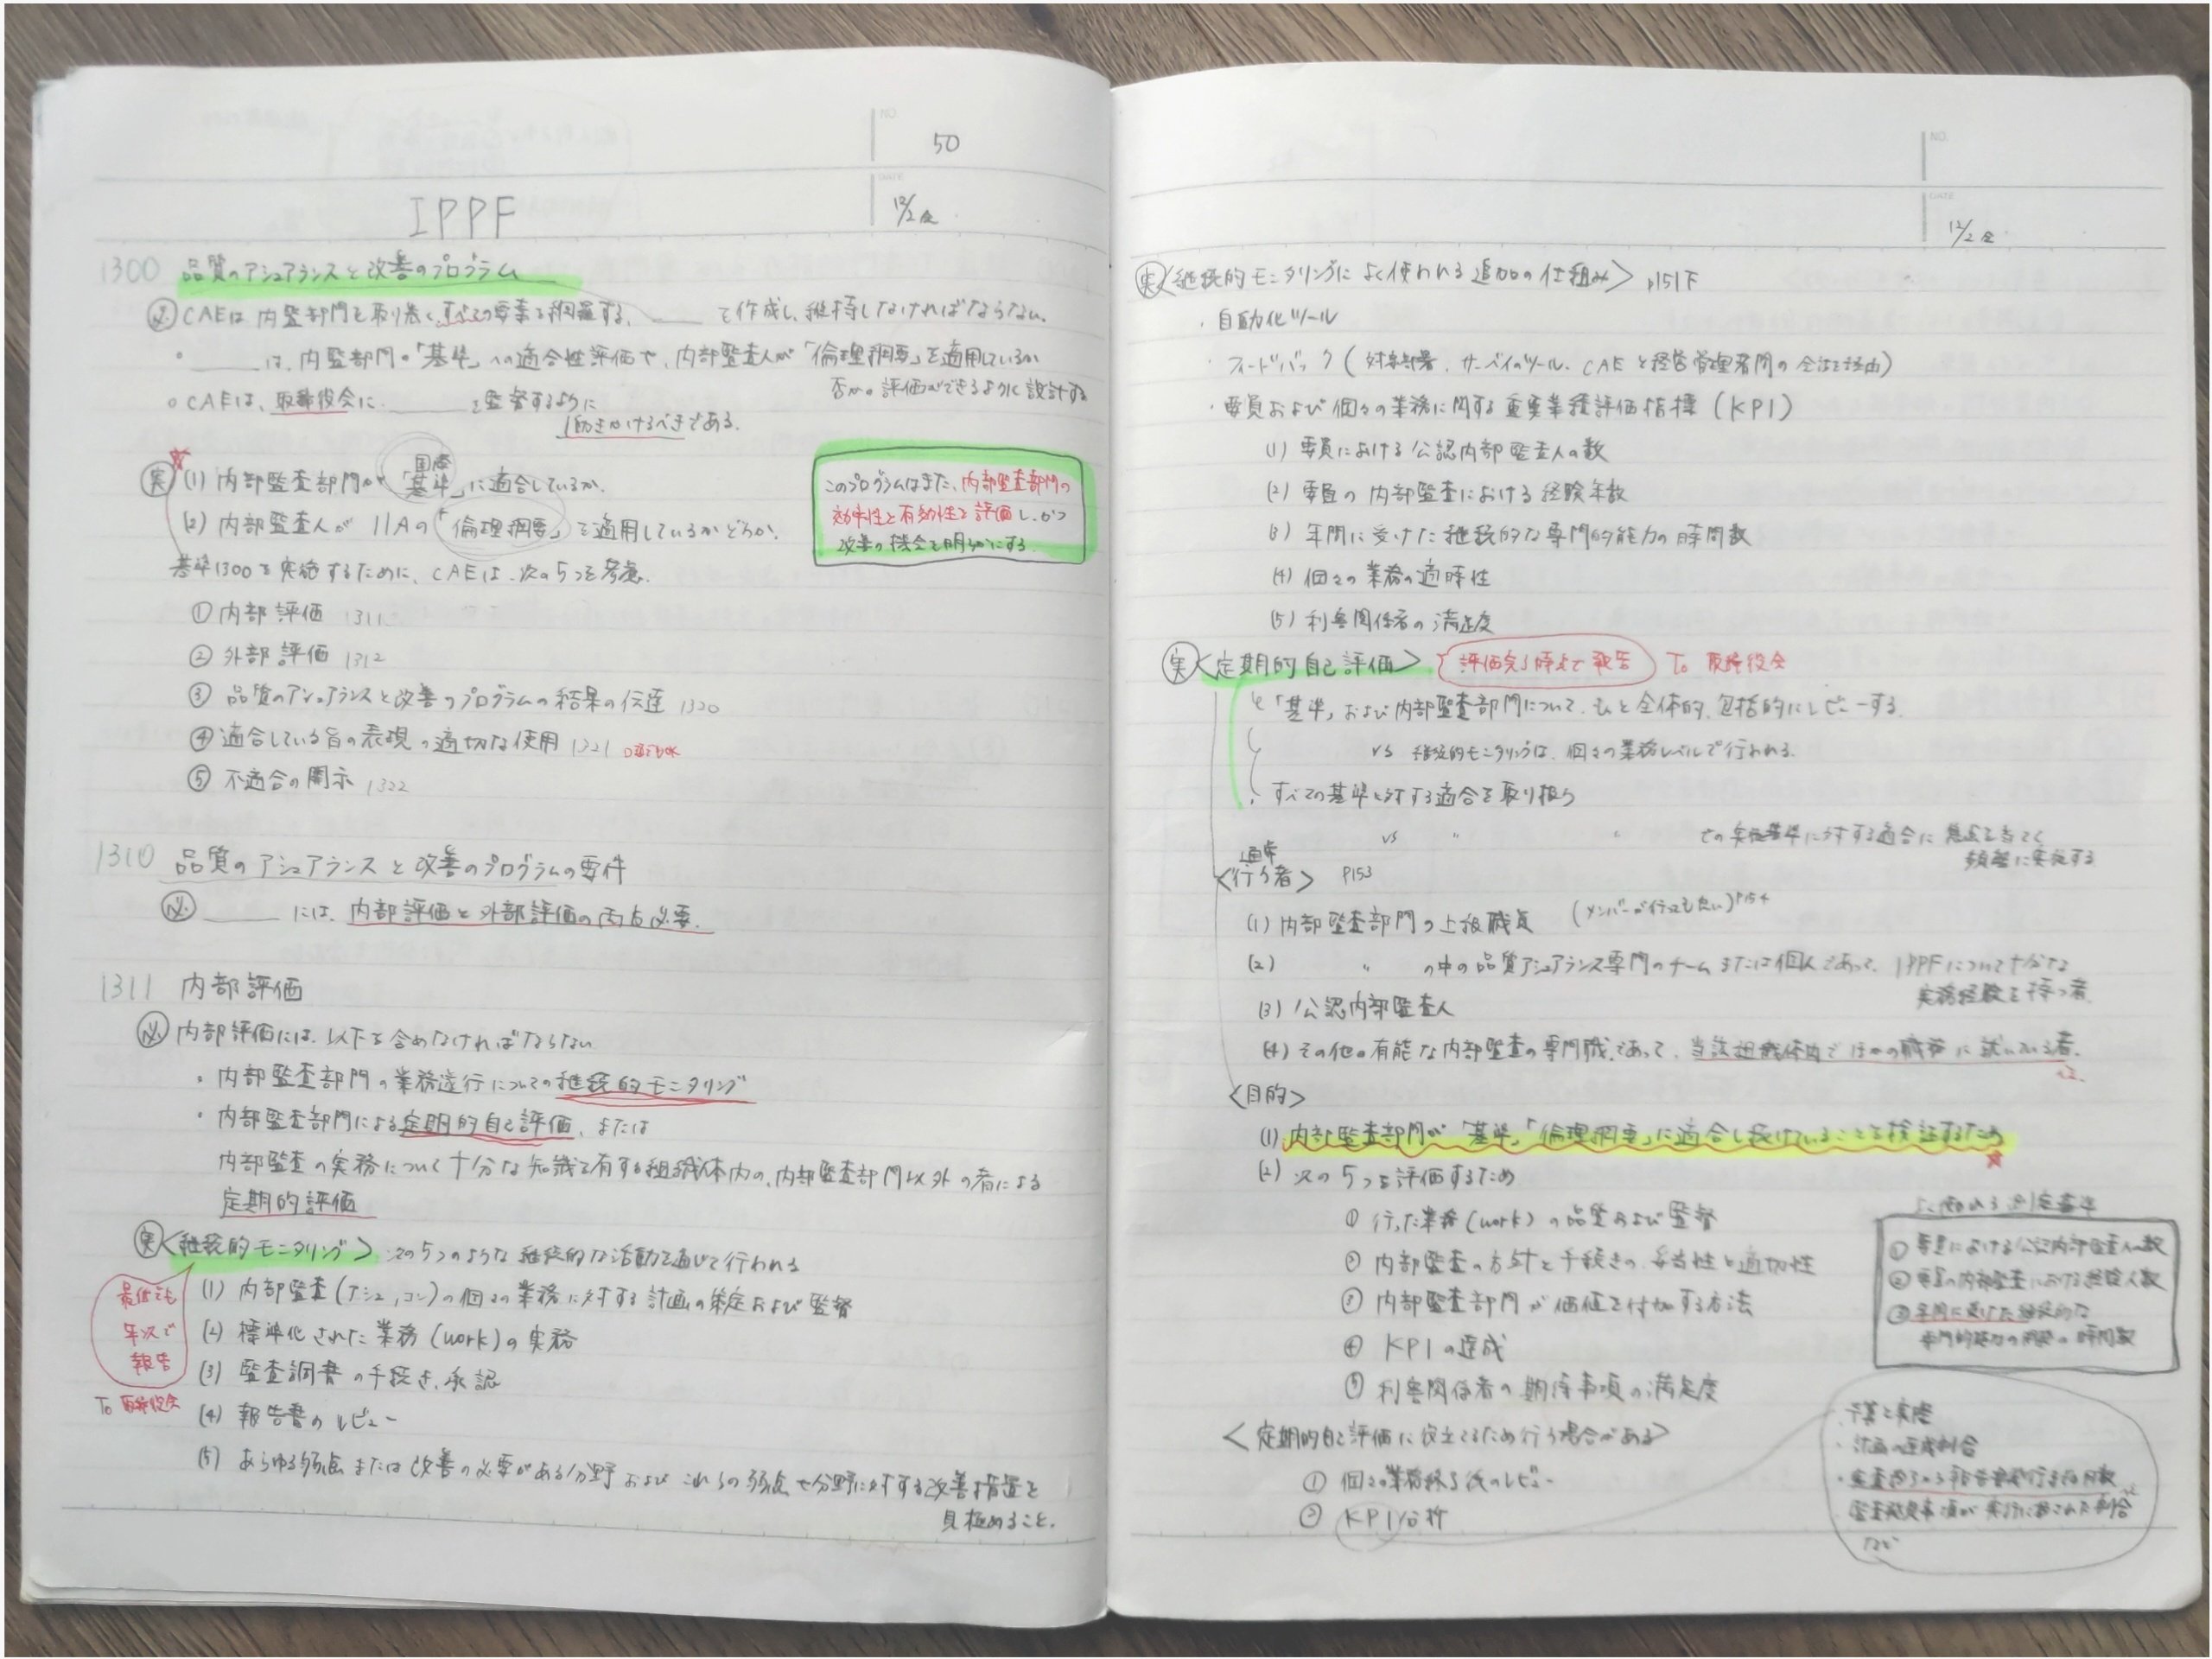 NO.
50
DATE
12/2 金
IPPF
1300 品質のアシュアランスと改善のプログラム
必 CAEは内監部門を取り巻くすべての要素を網羅する、____を作成し、維持しなければならない。
。____は、内監部門の「基準」への適合性評価や、内部監査人が「倫理綱要」を適用しているか
否かの評価ができるように設計する
。CAEは、取締役会に、____を監督するように
働きかけるべきである。
実 (1) 内部監査部門が「国際基準」に適合しているか、
(2) 内部監査人がIIAの「倫理綱要」を適用しているかどうか。
このプログラムはまた、内部監査部門の
効率性と有効性を評価し、かつ
改善の機会を明らかにする。
基準1300を実施するために、CAEは、次の5つを考慮。
① 内部評価 1311
② 外部評価 1312
③ 品質のアシュアランスと改善のプログラムの結果の伝達 1320
④ 適合している旨の表現の適切な使用 1321
⑤ 不適合の開示 1322
1310 品質のアシュアランスと改善のプログラムの要件
必 ____には、内部評価と外部評価の両方必要。
1311 内部評価
必 内部評価には、以下を含めなければならない
・内部監査部門の業務遂行についての継続的モニタリング
・内部監査部門による定期的自己評価、または
内部監査の実務について十分な知識を有する組織体内の、内部監査部門以外の者による
定期的評価
実 <継続的モニタリング> 次の5つのような継続的な活動を通じて行われる
最低でも
年次で
報告
To 取締役会
(1) 内部監査(アシュ,コン)の個々の業務に対する計画の策定および監督
(2) 標準化された業務(work)の実務
(3) 監査調書の手続き、承認
(4) 報告書のレビュー
(5) あらゆる弱点または改善の必要がある分野およびこれらの弱点や分野に対する改善措置を
見極めること。
NO.
DATE
12/2 金
実 <継続的モニタリングによく使われる追加の仕組み> p151下
・自動化ツール
・フィードバック(対象部署、サーベイのツール、CAEと経営管理者間の会話を経由)
・要員および個々の業務に関する重要業績評価指標(KPI)
(1) 要員における公認内部監査人の数
(2) 要員の内部監査における経験年数
(3) 年間に受けた継続的な専門的能力の時間数
(4) 個々の業務の適時性
(5) 利害関係者の満足度
実 <定期的自己評価> 評価完了時点で報告 To 取締役会
「基準」および内部監査部門について、もっと全体的、包括的にレビューする。
vs 継続的モニタリングは、個々の業務レベルで行われる。
・すべての基準に対する適合を取り扱う
vs 〃 〃 での実施基準に対する適合に焦点を当てて
頻繁に実施する
通常
<行う者> P153
(1) 内部監査部門の上級職員 (メンバーが行ってもよい) p154
(2) 〃 の中の品質アシュアランス専門のチームまたは個人であって、IPPFについて十分な
実務経験を持つ者
(3) 公認内部監査人
(4) その他の有能な内部監査の専門職であって、当該組織体内でほかの職務に就いている者。
<目的>
(1) 内部監査部門が「基準」「倫理綱要」に適合し続けていることを検証するため
(2) 次の5つを評価するため
① 行った業務(work)の品質および監督
② 内部監査の方針と手続きの妥当性と適切性
③ 内部監査部門が価値を付加する方法
④ KPIの達成
⑤ 利害関係者の期待事項の満足度
① 要員における公認内部監査人の数
② 要員の内部監査における経験人数
③ 年間に受けた継続的な
専門的能力の開発の時間数
<定期的自己評価に役立てるため行う場合がある>
① 個々の業務終了後のレビュー
② KPI分析
・予算と実際
・計画の達成割合
・監査終了から報告書発行までの日数
監査発見事項が実行に移された割合
など